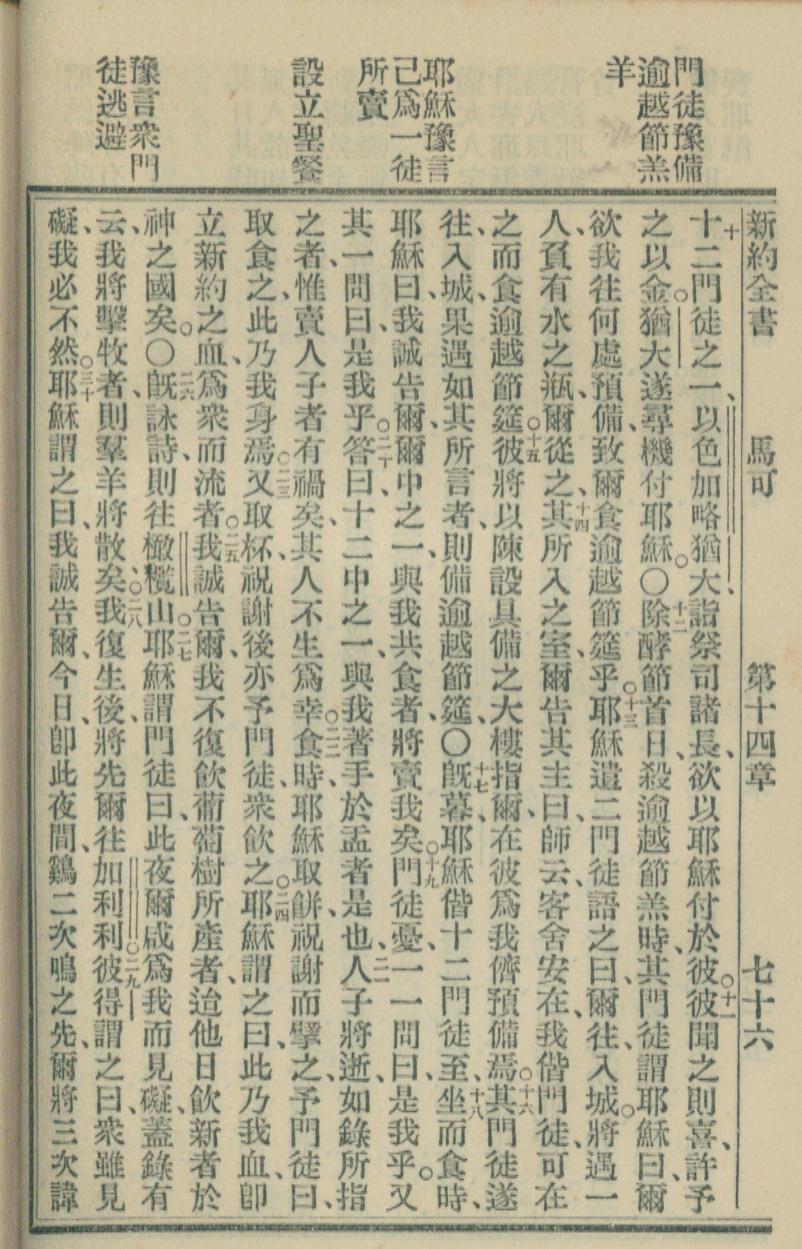 門徒豫備
逾越節羔
羊
耶穌豫言
己爲一徒
所賣
設立聖餐
豫言衆門
徒逃避
新約全書 馬可 第十四章 七十六
十十二門徒之一、以色加略猶大、詣祭司諸長、欲以耶穌付於彼、○十一彼聞之則喜、許予
之以金、○猶大遂尋機付耶穌。○十二除酵節首日、殺逾越節羔時、其門徒謂耶穌曰、爾
欲我往何處預備、致爾食逾越節筵乎、○十三耶穌遣二門徒語之曰、爾往入城、將遇一
人負有水之瓶、爾從之、十四其所入之室、爾告其主曰、師云、客舍安在、我偕門徒可在
之而食逾越節筵、○十五彼將以陳設具備之大樓指爾、在彼爲我儕預備焉、○十六其門徒遂
往、入城、果遇如其所言者、則備逾越節筵、○十七旣暮、耶穌偕十二門徒至、十八坐而食時、
耶穌曰、我誠告爾、爾中之一、與我共食者、將賣我矣、○十九門徒憂、一一問曰、是我乎。又
其一問曰、是我乎、○二十答曰、十二中之一、與我著手於盂者是也、二一人子將逝、如錄所指
之者、惟賣人子者有禍矣、其人不生爲幸、○二二食時、耶穌取餅、祝謝而擘之、予門徒曰、
取食之、此乃我身焉、○二三又取杯、祝謝後、亦予門徒、衆飲之、○二四耶穌謂之曰、此乃我血、卽
立新約之血、爲衆而流者、○二五我誠告爾、我不復飲葡萄樹所產者、迨他日飲新者於
神之國矣。○二六旣詠詩、則往橄欖山、○二七耶穌謂門徒曰、此夜爾咸爲我而見礙、蓋錄有
云、我將擊牧者、則羣羊將散矣、○二八我復生後、將先爾往加利利、○二九彼得謂之曰、衆雖見
礙、我必不然、○三十耶穌謂之曰、我誠告爾、今日、卽此夜間、鷄二次鳴之先、爾將三次諱